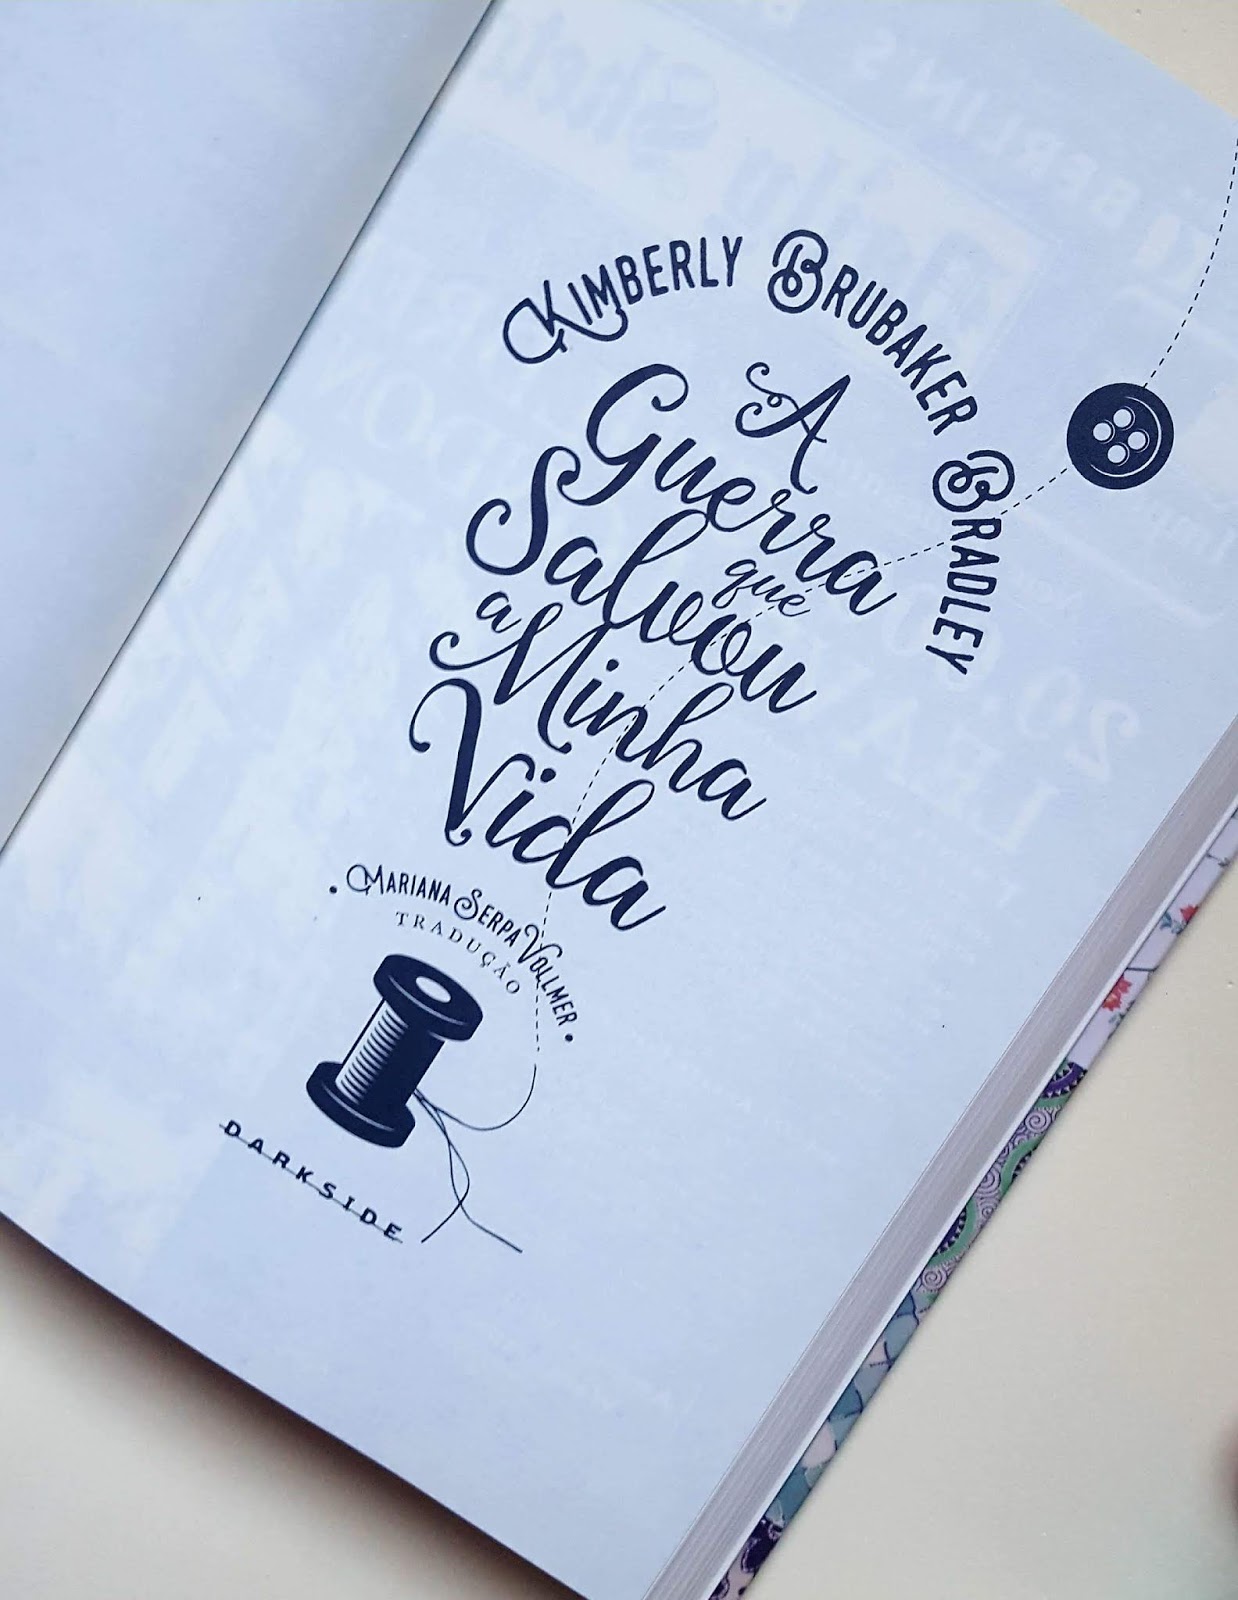 Kimberly Brubaker Bradley
A
Guerra
que
Salvou
a Minha
Vida
Mariana Serpa Vollmer
TRADUÇÃO
DARKSIDE